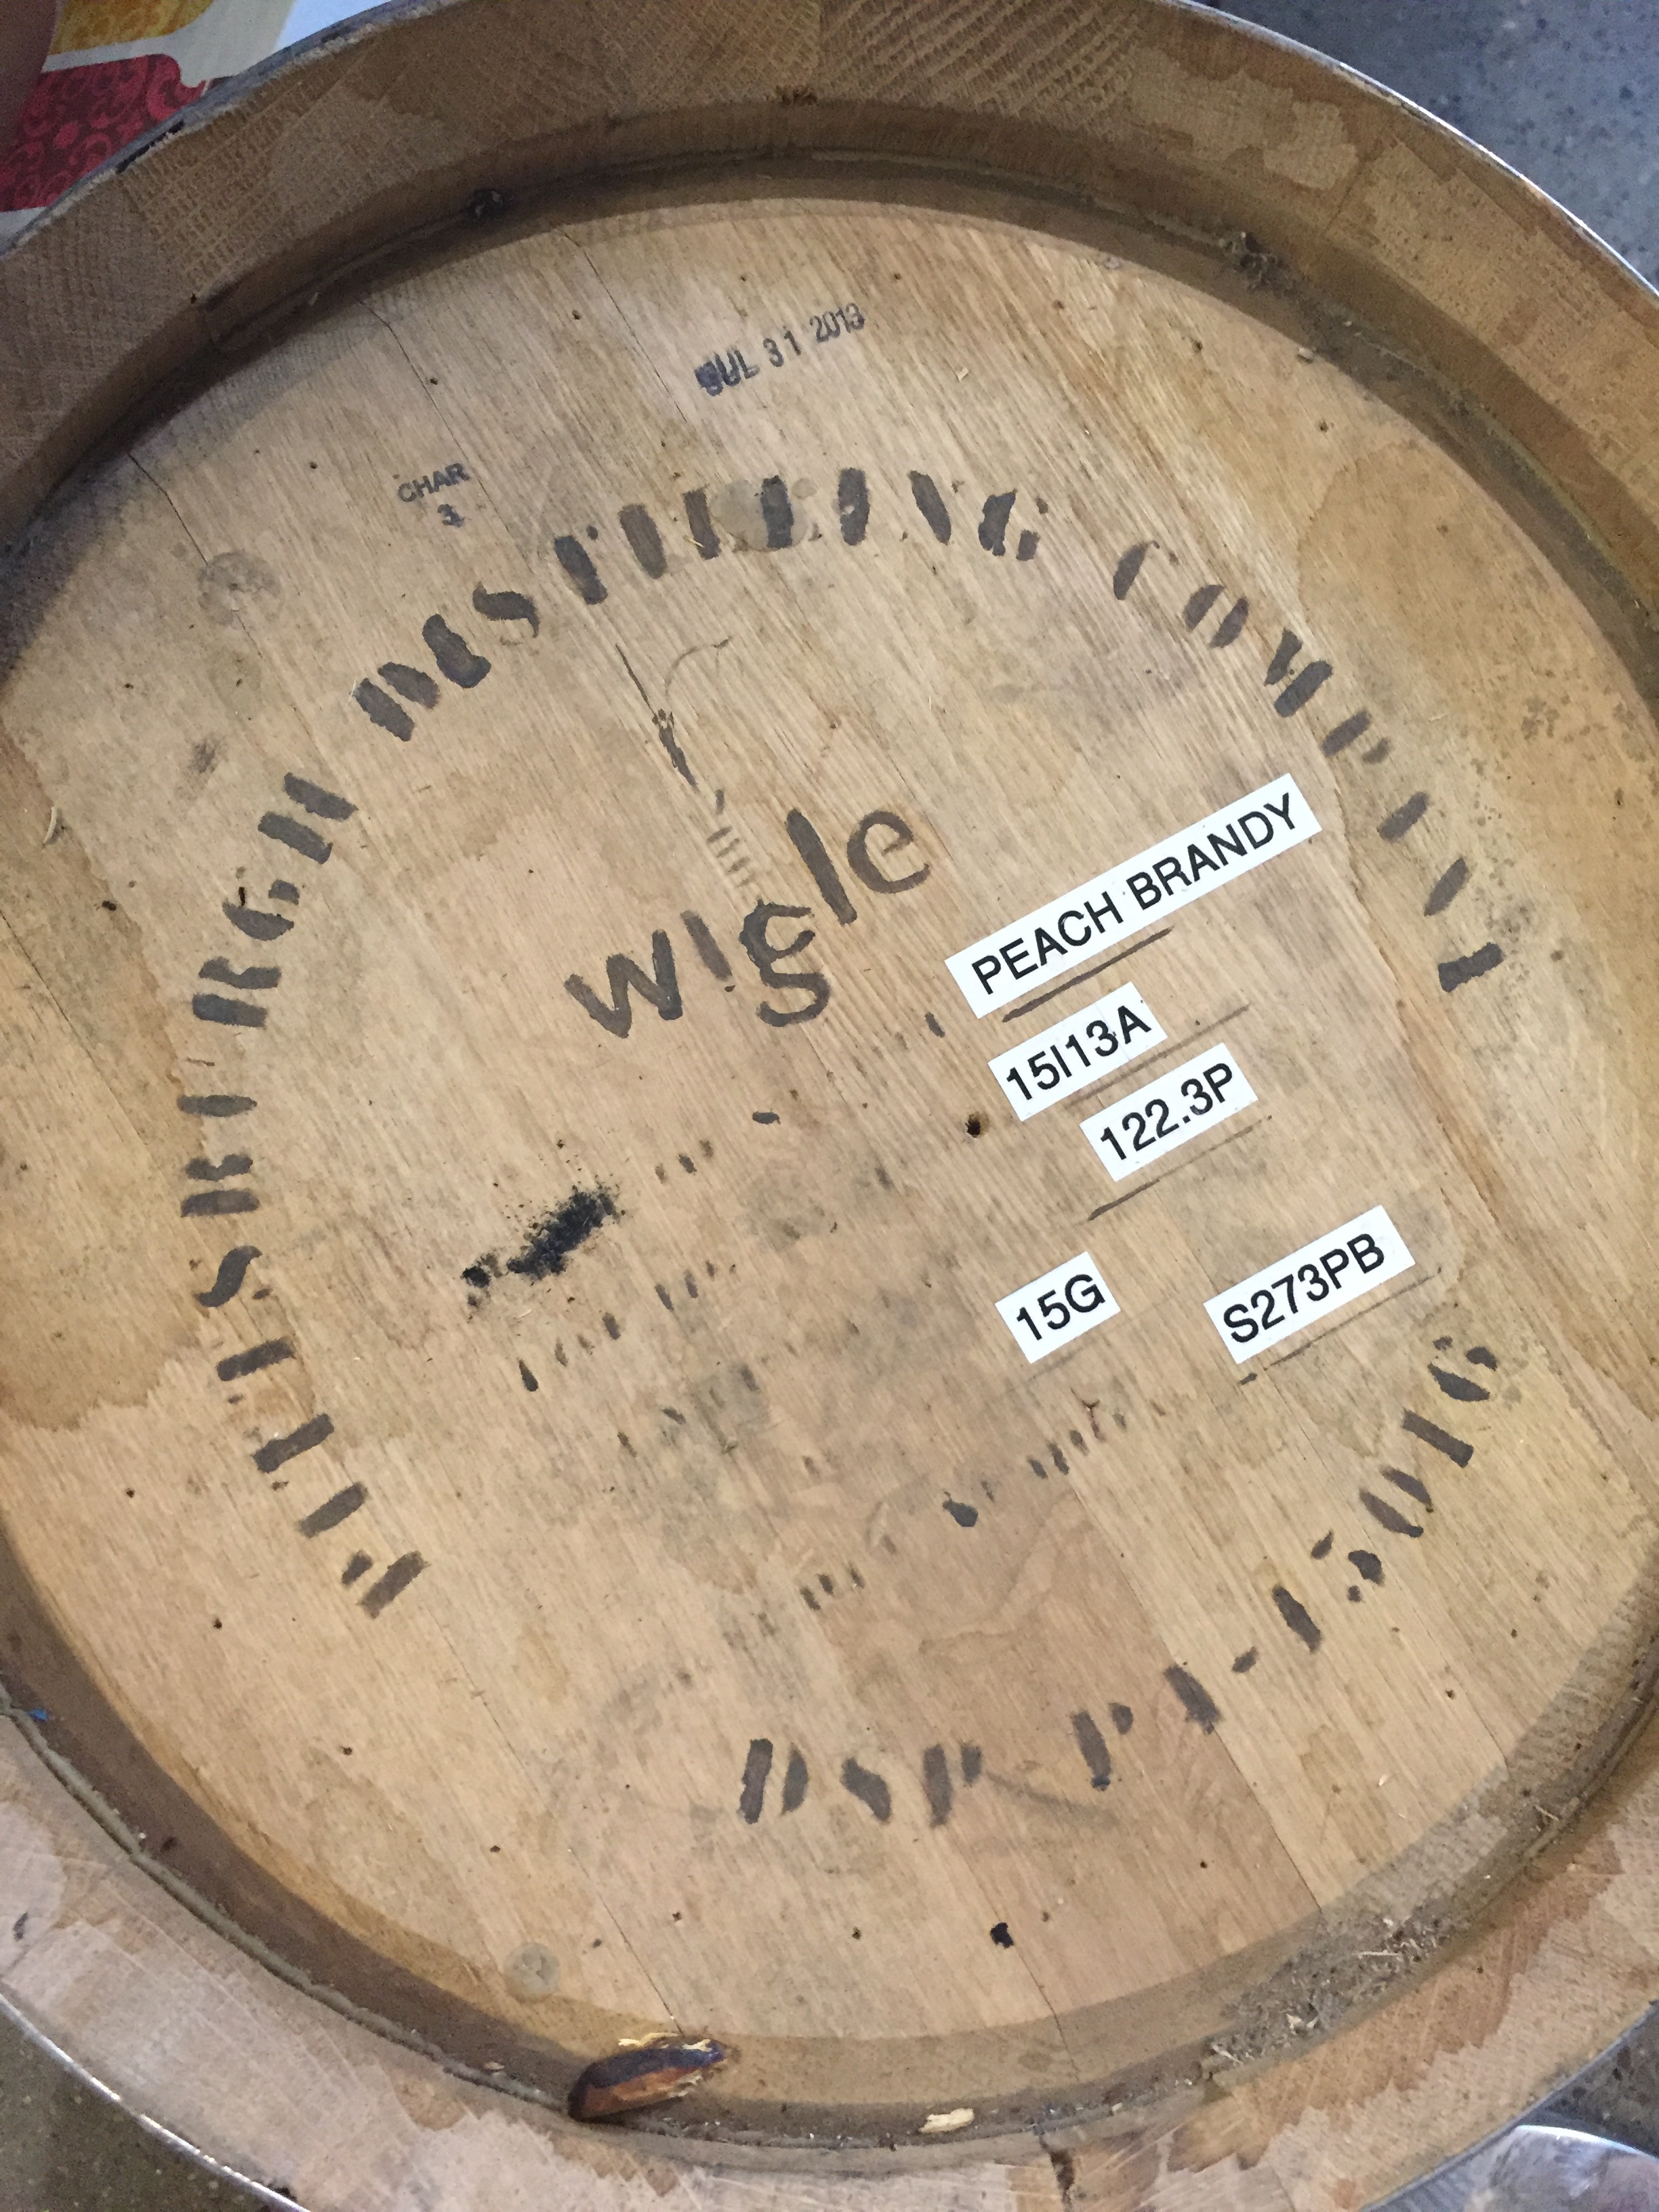 JUL 31 2013
CHAR
3
PITTSBURGH DISTILLING COMPANY
wigle
PEACH BRANDY
15I13A
122.3P
15G
S273PB
DSP PA-15016